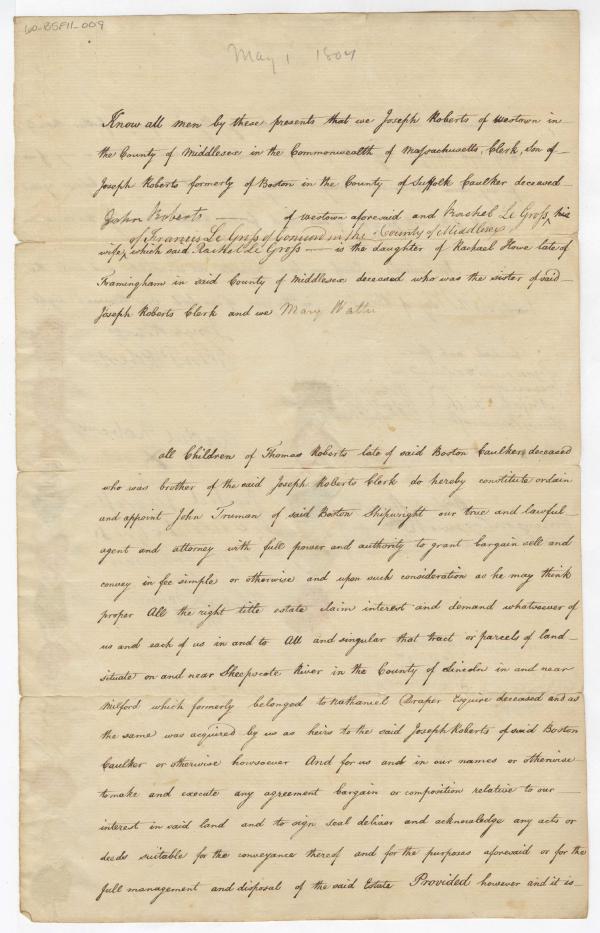 60-BSF11-009
May 1 1804
Know all men by these presents that we Joseph Roberts of westown in
the County of Middlesex in the Commonwealth of Massachusetts, Clerk, son of
Joseph Roberts formerly of Boston in the County of Suffolk Caulker deceased
John Roberts of westown aforesaid and Rachel Le Gross, his
of Francis Le Gross of Concord in the County of Middlesex
wife, which said Rachel Le Gross is the daughter of Rachael Howe late of
Framingham in said County of Middlesex deceased who was the sister of said
Joseph Roberts Clerk and we Mary
all Children of Thomas Roberts late of said Boston Caulker deceased
who was brother of the said Joseph Roberts Clerk do hereby constitute ordain
and appoint John Truman of said Boston Shipwright our true and lawful
agent and attorney with full power and authority to grant bargain sell and
convey in fee simple or otherwise and upon such consideration as he may think
proper All the right title estate claim interest and demand whatsoever of
us and each of us in and to All and singular that tract or parcels of land
situate on and near Sheepscote River in the County of Lincoln in and near
Milford which formerly belonged to Nathaniel Draper Esquire deceased and as
the same was acquired by us as heirs to the said Joseph Roberts of said Boston
Caulker or otherwise howsoever And for us and in our names or otherwise
to make and execute any agreement bargain or composition relative to our
interest in said land and to sign seal deliver and acknowledge any acts or
deeds suitable for the conveyance thereof and for the purposes aforesaid or for the
full management and disposal of the said Estate Provided however and it is